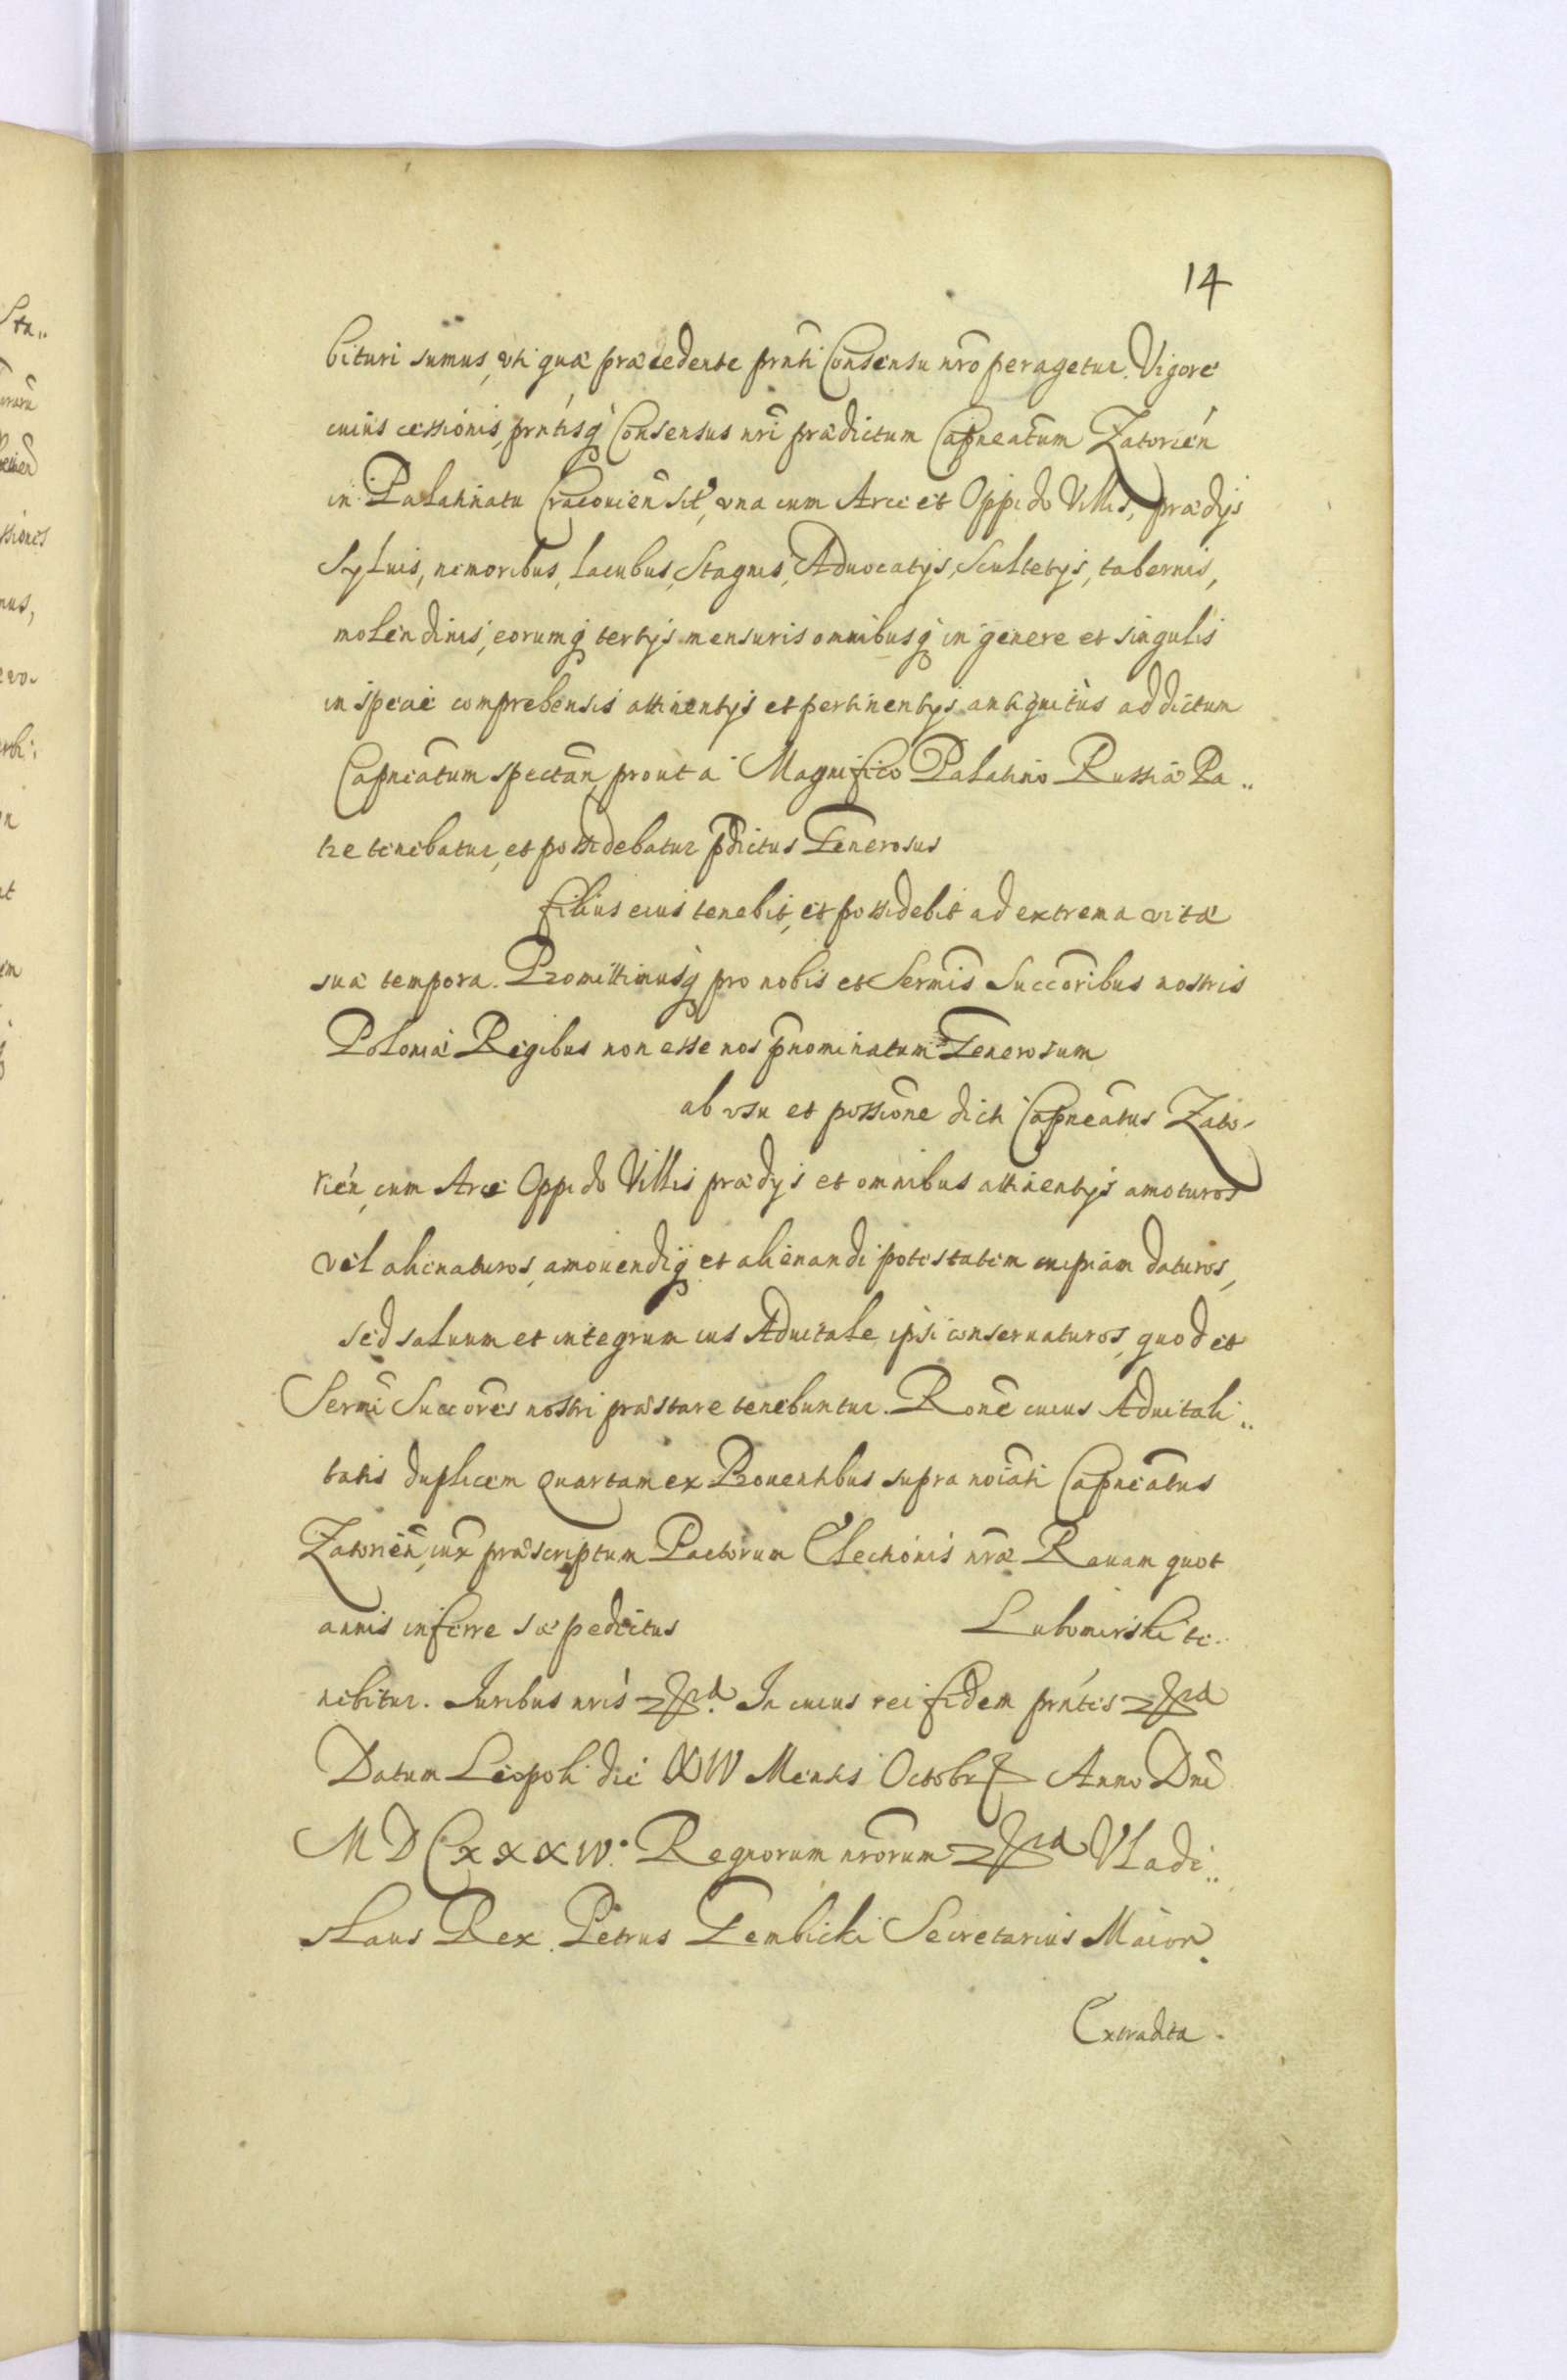 14
bituri sumus, uti quæ præcedente prnti Consensu nro peragetur. Vigore
cuius cessionis, prntisq Consensus nri prædictum Capneatum Zatorien
in Palatinatu Cracouien sit, vna cum Arce et Oppido Villis, prædijs
Syluis, nemoribus, lacubus, Stagnis, Aduocatijs, Scultetijs, tabernis,
molendinis, eorumq tertijs mensuris omnibusq in genere et singulis
in specie comprehensis attinentijs et pertinentijs antiquitus ad dictum
Capneatum spectan, prout a Magnifico Palatino Russiæ Pa..
tre tenebatur, et possidebatur pdictus Generosus
filius eius tenebit, et possidebit ad extrema vitæ
suæ tempora. Promittimusq pro nobis et Sermis Succoribus nostris
Poloniæ Regibus non esse nos pnominatum Generosum
ab vsu et possione dicti Capneatus Zato-
rien, cum Arce Oppido Villis prædijs et omnibus attinentijs amoturos
vel alienaturos, amouendiq et alienandi potestatem cuipiam daturos,
sed saluum et integrum ius Aduitale ipsi conseruaturos, quod et
Sermi Succores nostri præstare tenebuntur. Rone cuius Aduitali..
tatis duplicem quartam ex Prouentibus supra noiati Capneatus
Zatorien, iux præscriptum Pactorum Electionis nræ Rauam quot
annis inferre sæpedictus Lubomirski te..
nebitur. Juribus nris In cuius rei fidem prntes
Datum Leopoli die XIV Mensis Octobr Anno Dni
MDCXXXIV. Regnorum nrorum Vladi..
slaus Rex. Petrus Gembicki Secretarius Maior.
Extradita.
Sta..
ssiones